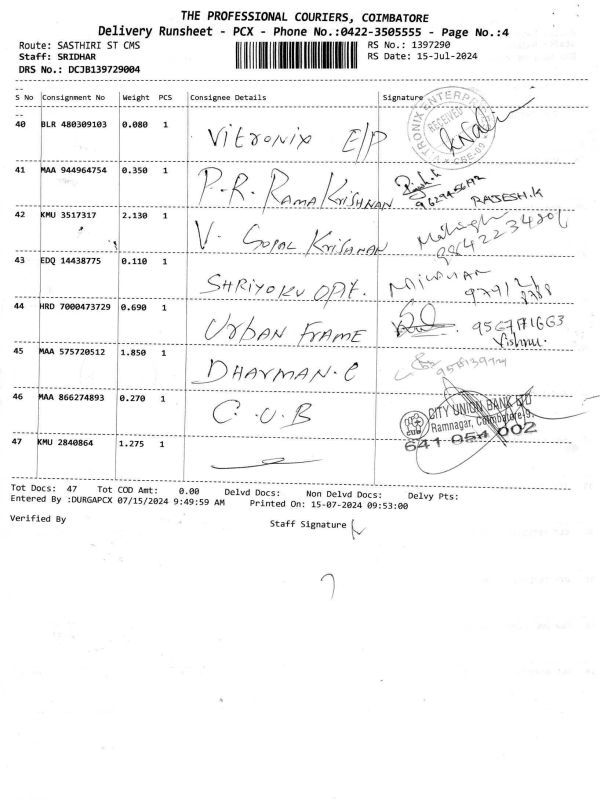 THE PROFESSIONAL COURIERS, COIMBATORE
Delivery Runsheet - PCX - Phone No.:0422-3505555 - Page No.:4
Route: SASTHIRI ST CMS RS No.: 1397290
Staff: SRIDHAR RS Date: 15-Jul-2024
DRS No.: DCJB139729004
S No Consignment No Weight PCS Consignee Details Signature
40 BLR 480309103 0.080 1 Vitronix E/P
RECEIVED
41 MAA 944964754 0.350 1 P.R. Rama Krishnan RAJESH.K
42 KMU 3517317 2.130 1 V. Gopal Krishnan
43 EDQ 14438775 0.110 1
44 HRD 7000473729 0.690 1 Urban Frame
Vishnu.
45 MAA 575720512 1.850 1 Dharman.C
46 MAA 866274893 0.270 1 C.U.B
CITY UNION BANK LTD
CUB Ramnagar, Coimbatore-9.
641 054 002
47 KMU 2840864 1.275 1
Tot Docs: 47 Tot COD Amt: 0.00 Delvd Docs: Non Delvd Docs: Delvy Pts:
Entered By :DURGAPCX 07/15/2024 9:49:59 AM Printed On: 15-07-2024 09:53:00
Verified By Staff Signature